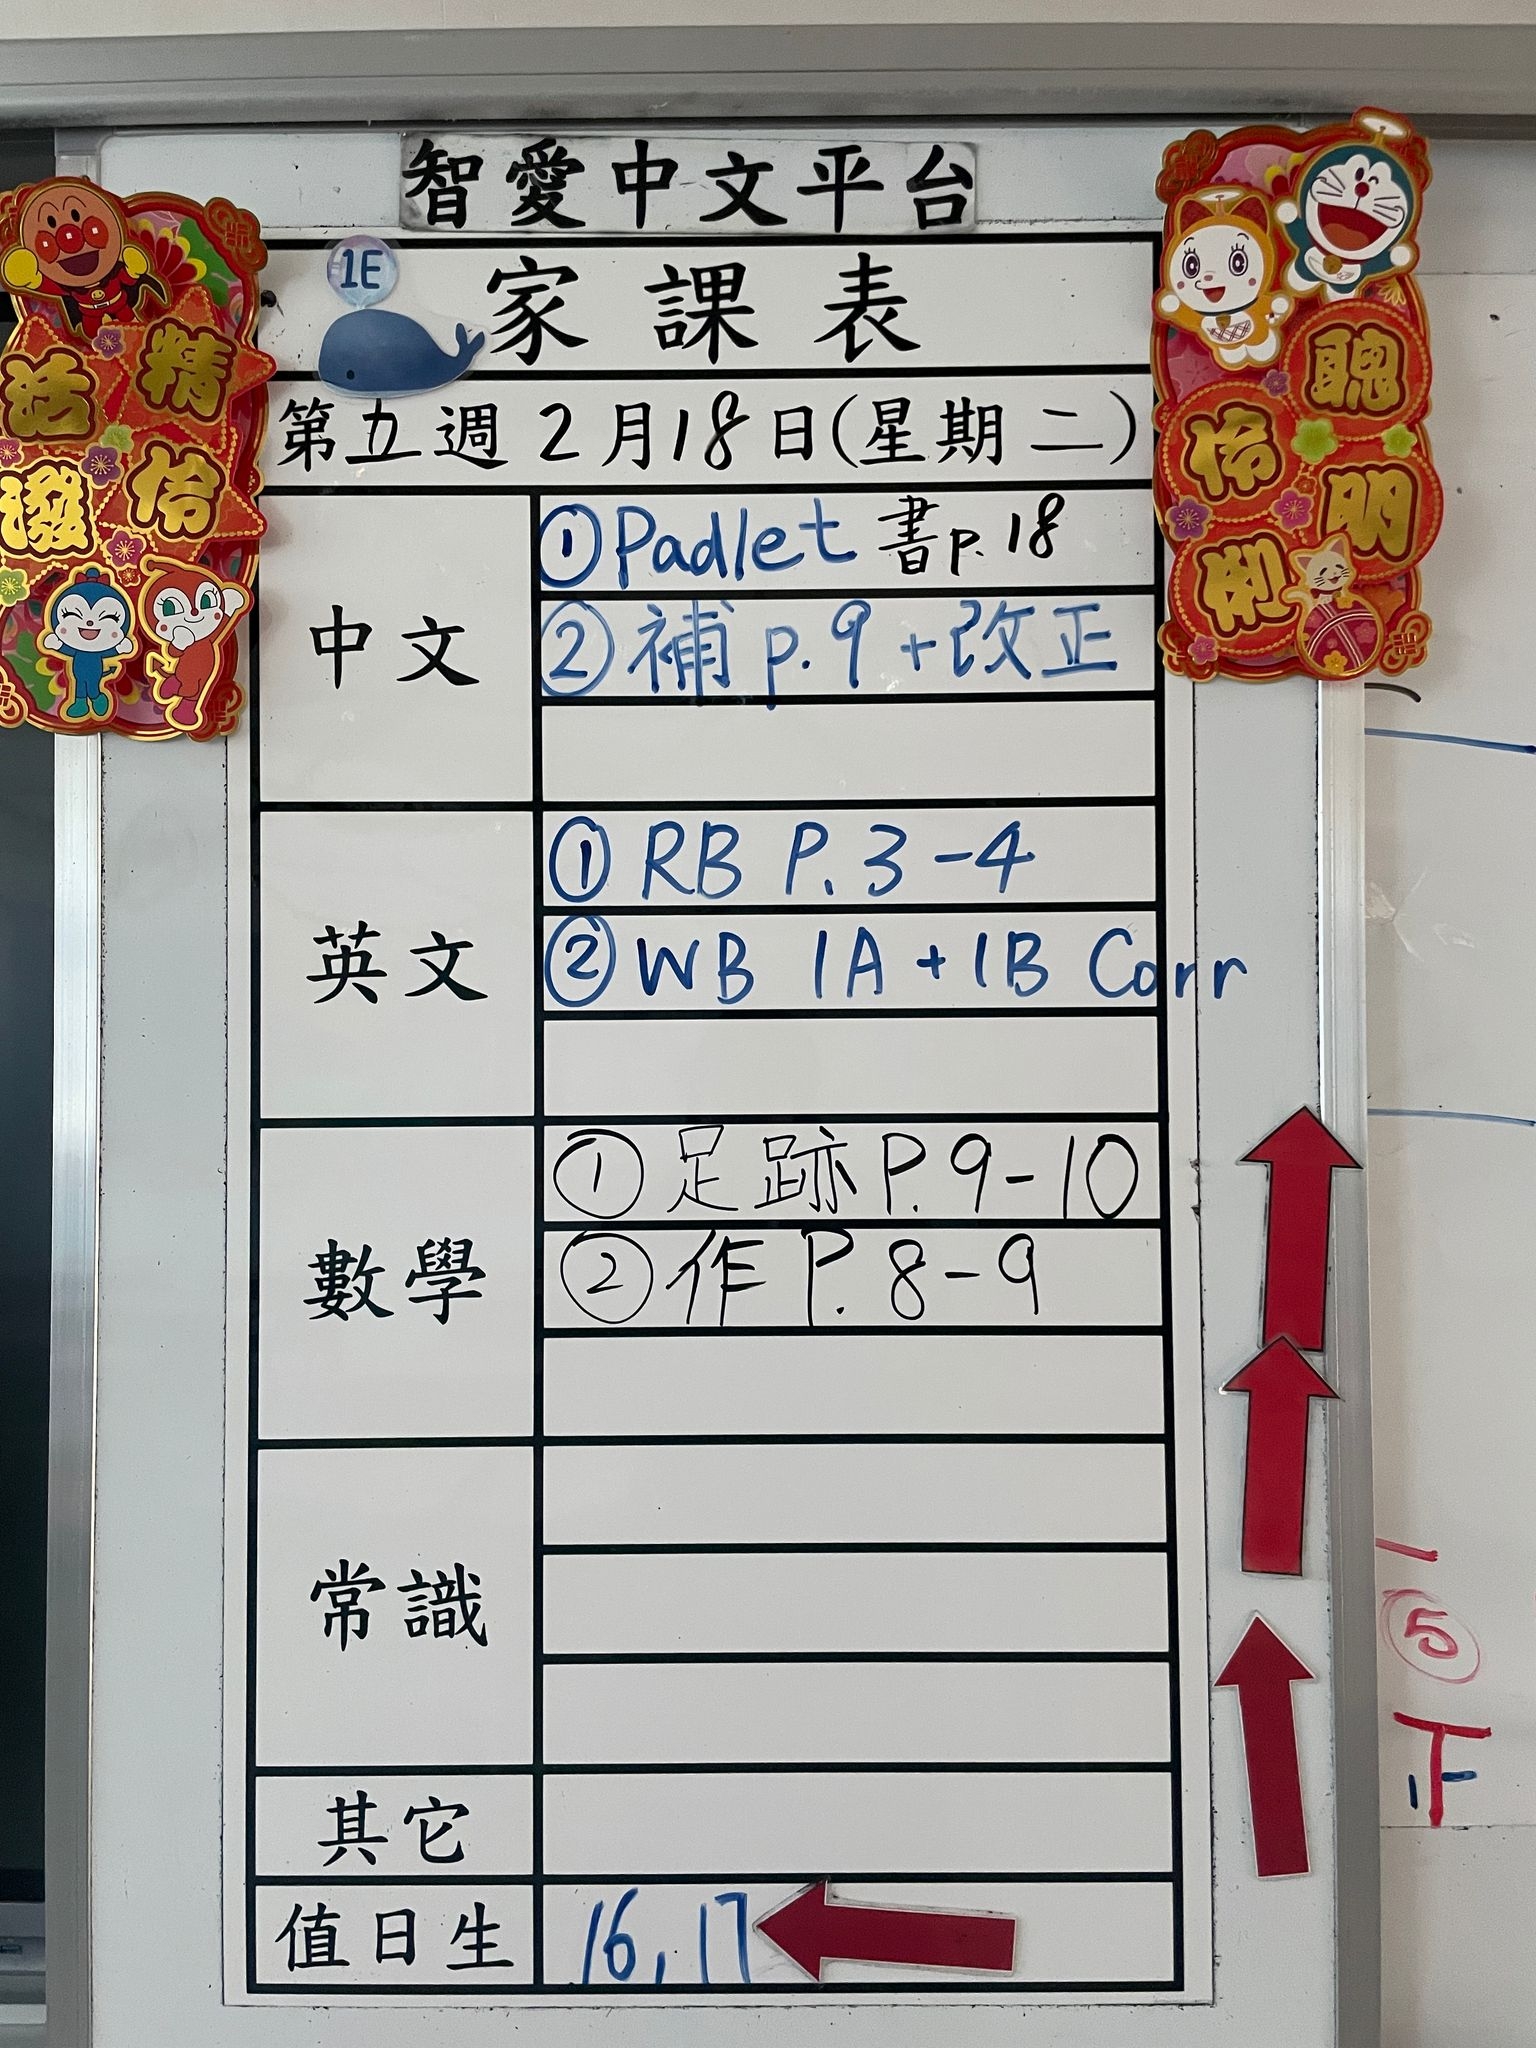 智愛中文平台
1E
家課表
第五週2月18日(星期二)
中文
①Padlet 書p.18
②補p.9+改正
英文
①RB P.3-4
②WB 1A+1B Corr
數學
①足跡P.9-10
②作P.8-9
常識
其它
值日生
16,17
精
活
伶
潑
聰
明
伶
俐
⑤